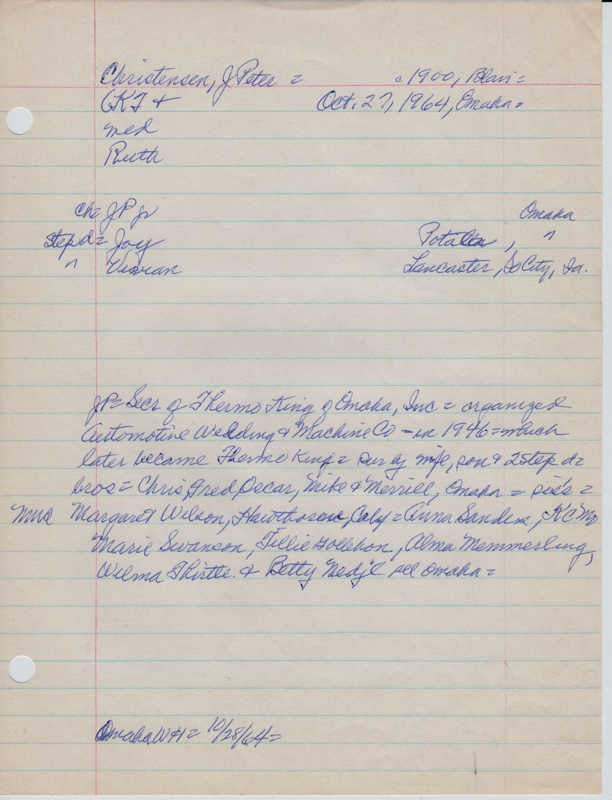 Christensen, J Peter = c1900, Blair =
CKT + Oct. 27, 1964, Omaha =
med
Ruth
ch = J P Jr Omaha
step d = Joy , "
" Vivian Lancaster, So City, Ia.
JP = Secr of Thermo King of Omaha, Inc = organized
Automotive Welding & Machine Co - in 1946 = which
later became Thermo King = sur by wife, son & 2 step d =
bros = Chris, Fred, Oscar, Mike & Merrill, Omaha = sis's =
Mrs Margaret Wilson, Hawthorne, Calif = Anna Sanders, K C Mo
Marie Swanson, Tillie, Alma Memmerling,
Wilma Thistle & Betty all Omaha =
Omaha WH = 10/28/64 =